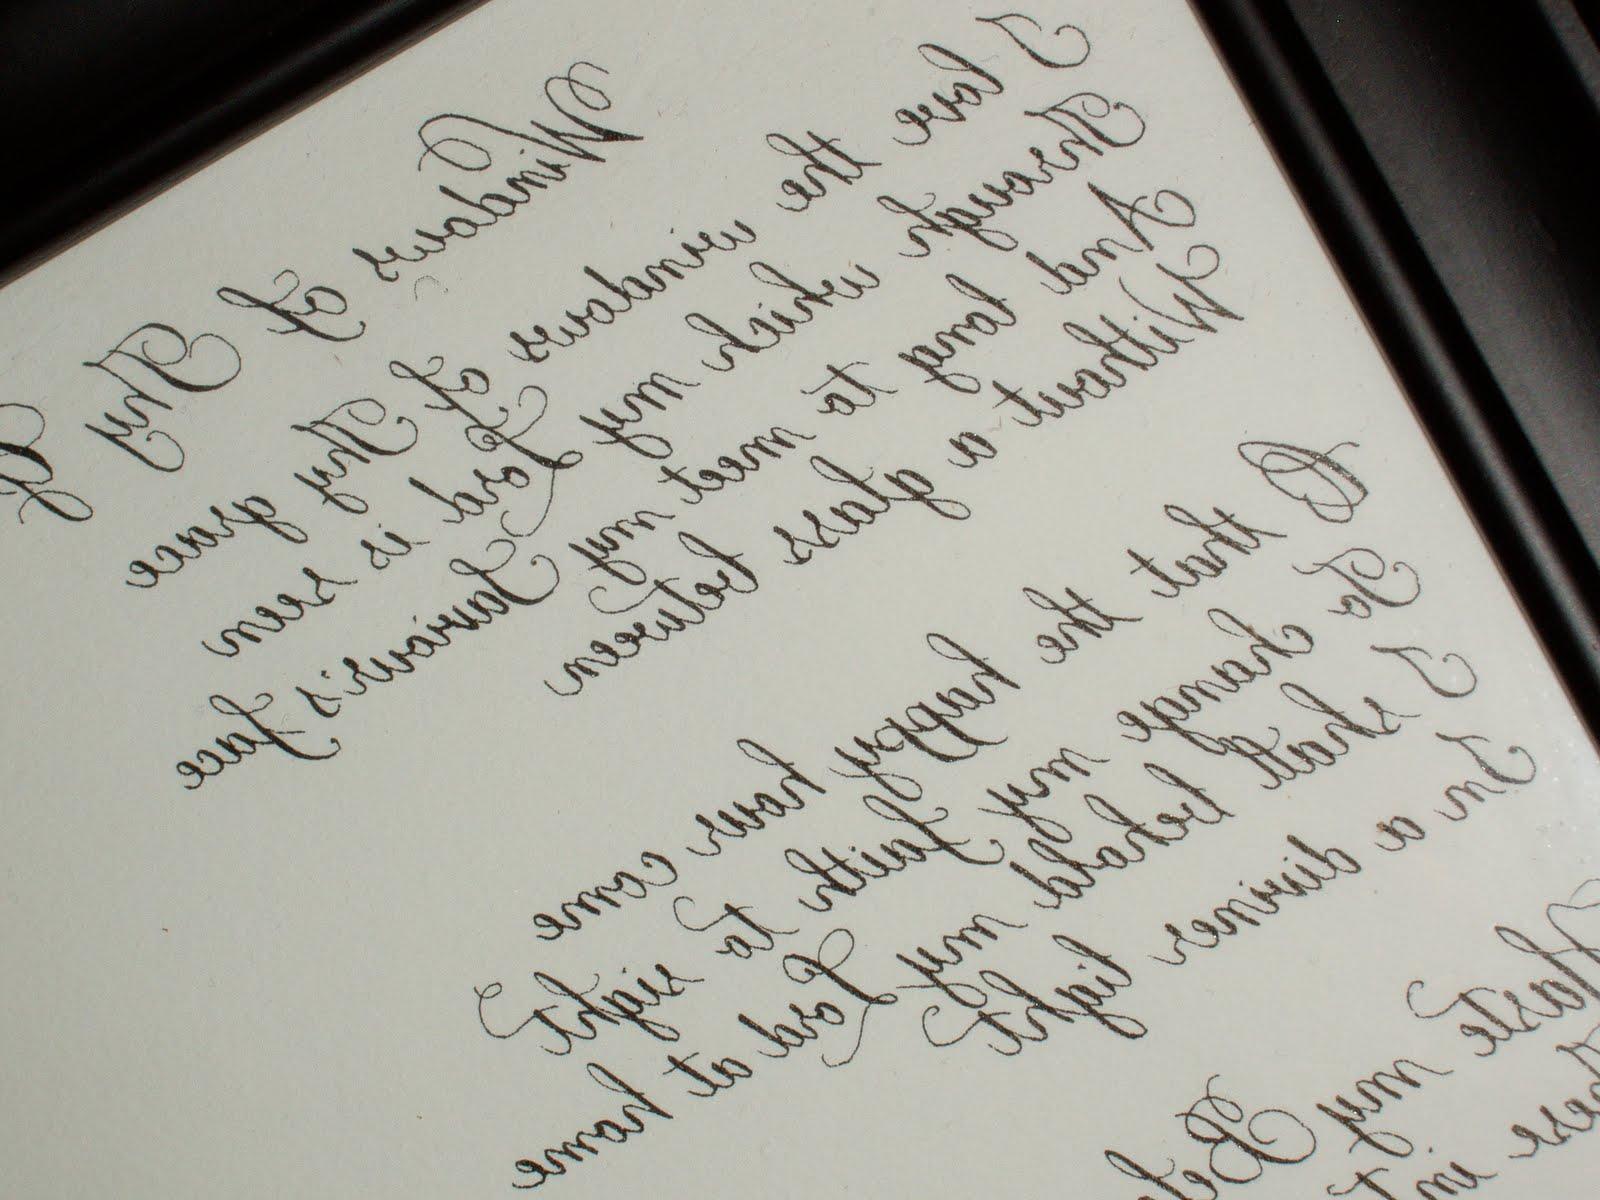 Windows Of Thy
I love the windows of Thy grace
Through which my Lord is seen
And long to meet my Saviour's face
Without a glass between
O that the happy hours come
To change my faith to sight
I shall behold my Lord at home
In a diviner light
Haste my